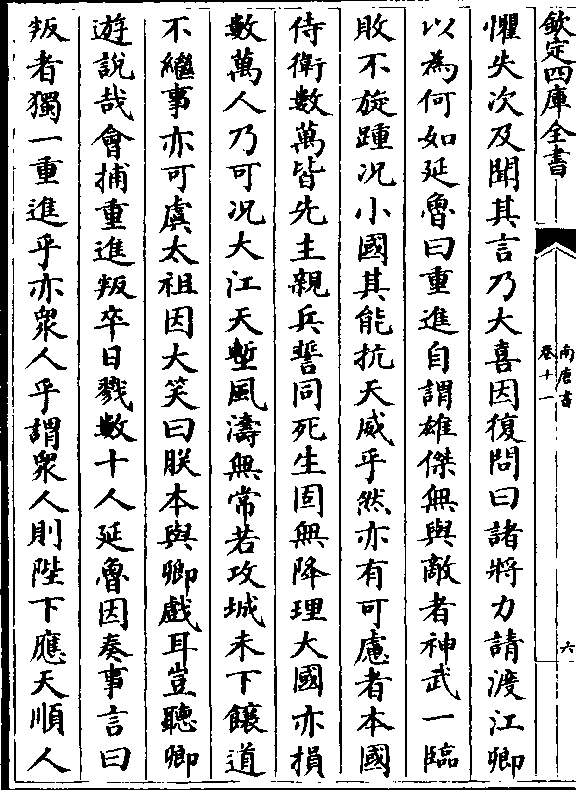 欽定四庫全書
南唐書
卷十一
六
懼失次及聞其言乃大喜因復問曰諸將力請渡江卿
以為何如延魯曰重進自謂雄傑無與敵者神武一臨
敗不旋踵况小國其能抗天威乎然亦有可慮者本國
侍衛數萬皆先主親兵誓同死生固無降理大國亦損
數萬人乃可况大江天塹風濤無常若攻城未下饟道
不繼事亦可虞太祖因大笑曰朕本與卿戲耳豈聽卿
遊說哉會捕重進叛卒日戮數十人延魯因奏事言曰
叛者獨一重進乎亦衆人乎謂衆人則陛下應天順人